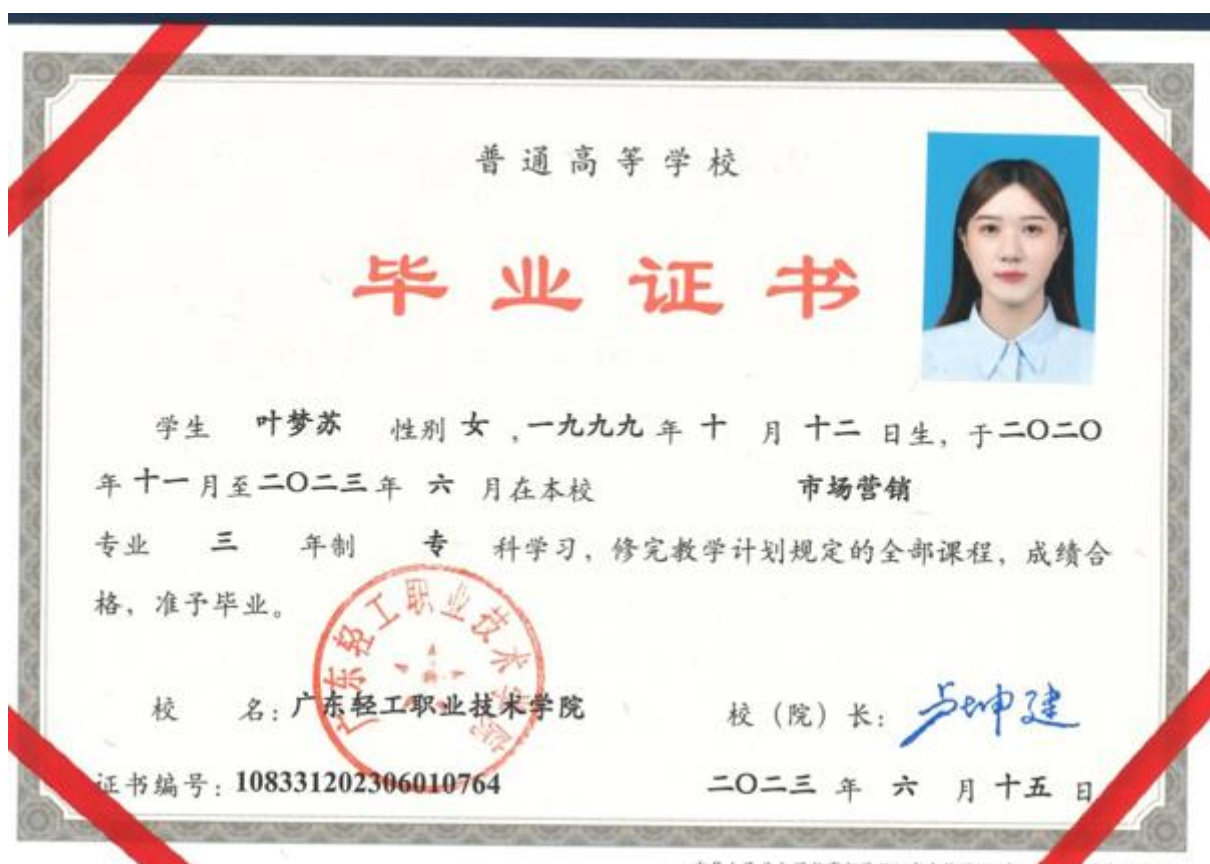 普通高等学校
毕业证书
学生 叶梦苏 性别 女 ,一九九九 年 十 月 十二 日生, 于二〇二〇
年 十一 月至 二〇二三 年 六 月在本校 市场营销
专业 三 年制 专 科学习, 修完教学计划规定的全部课程, 成绩合
格, 准予毕业。
广东轻工职业技术学院
校 名: 广东轻工职业技术学院 校 (院) 长: 卢坤建
证书编号: 108331202306010764 二〇二三 年 六 月 十五 日